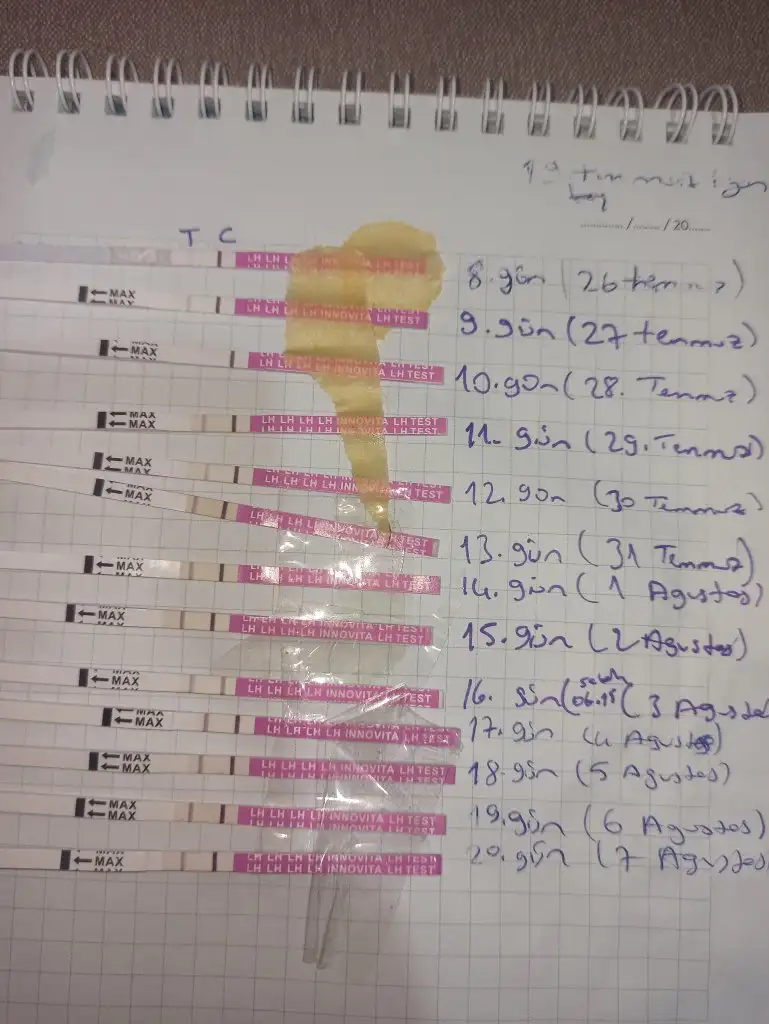 19 temmuz
....../....../20......
T C
LH LH LH INNOVITA LH TEST
8.gün (26 temmuz)
MAX
LH LH LH LH INNOVITA LH TEST
9.gün (27 temmuz)
MAX
LH LH LH LH INNOVITA LH TEST
10.gün (28. Temmuz)
MAX
LH LH LH LH INNOVITA LH TEST
11. gün (29. Temmuz)
MAX
LH LH LH LH INNOVITA LH TEST
12. gün (30 Temmuz)
MAX
LH LH LH LH INNOVITA LH TEST
13. gün (31 Temmuz)
MAX
LH LH LH LH INNOVITA LH TEST
14. gün (1 Agustos)
MAX
LH LH LH LH INNOVITA LH TEST
15. gün (2 Agustos)
MAX
LH LH LH LH INNOVITA LH TEST
16. gün (sabah 06.15 (3 Agustos
MAX
LH LH LH LH INNOVITA LH TEST
17. gün (4 Agustos)
MAX
LH LH LH LH INNOVITA LH TEST
18. gün (5 Agustos)
MAX
LH LH LH LH INNOVITA LH TEST
19.gün (6 Agustos)
MAX
LH LH LH LH INNOVITA LH TEST
20. gün (7 Agustos